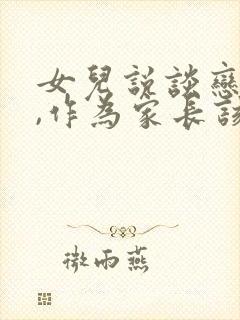 女兒說談戀
,作為家長該
微雨燕